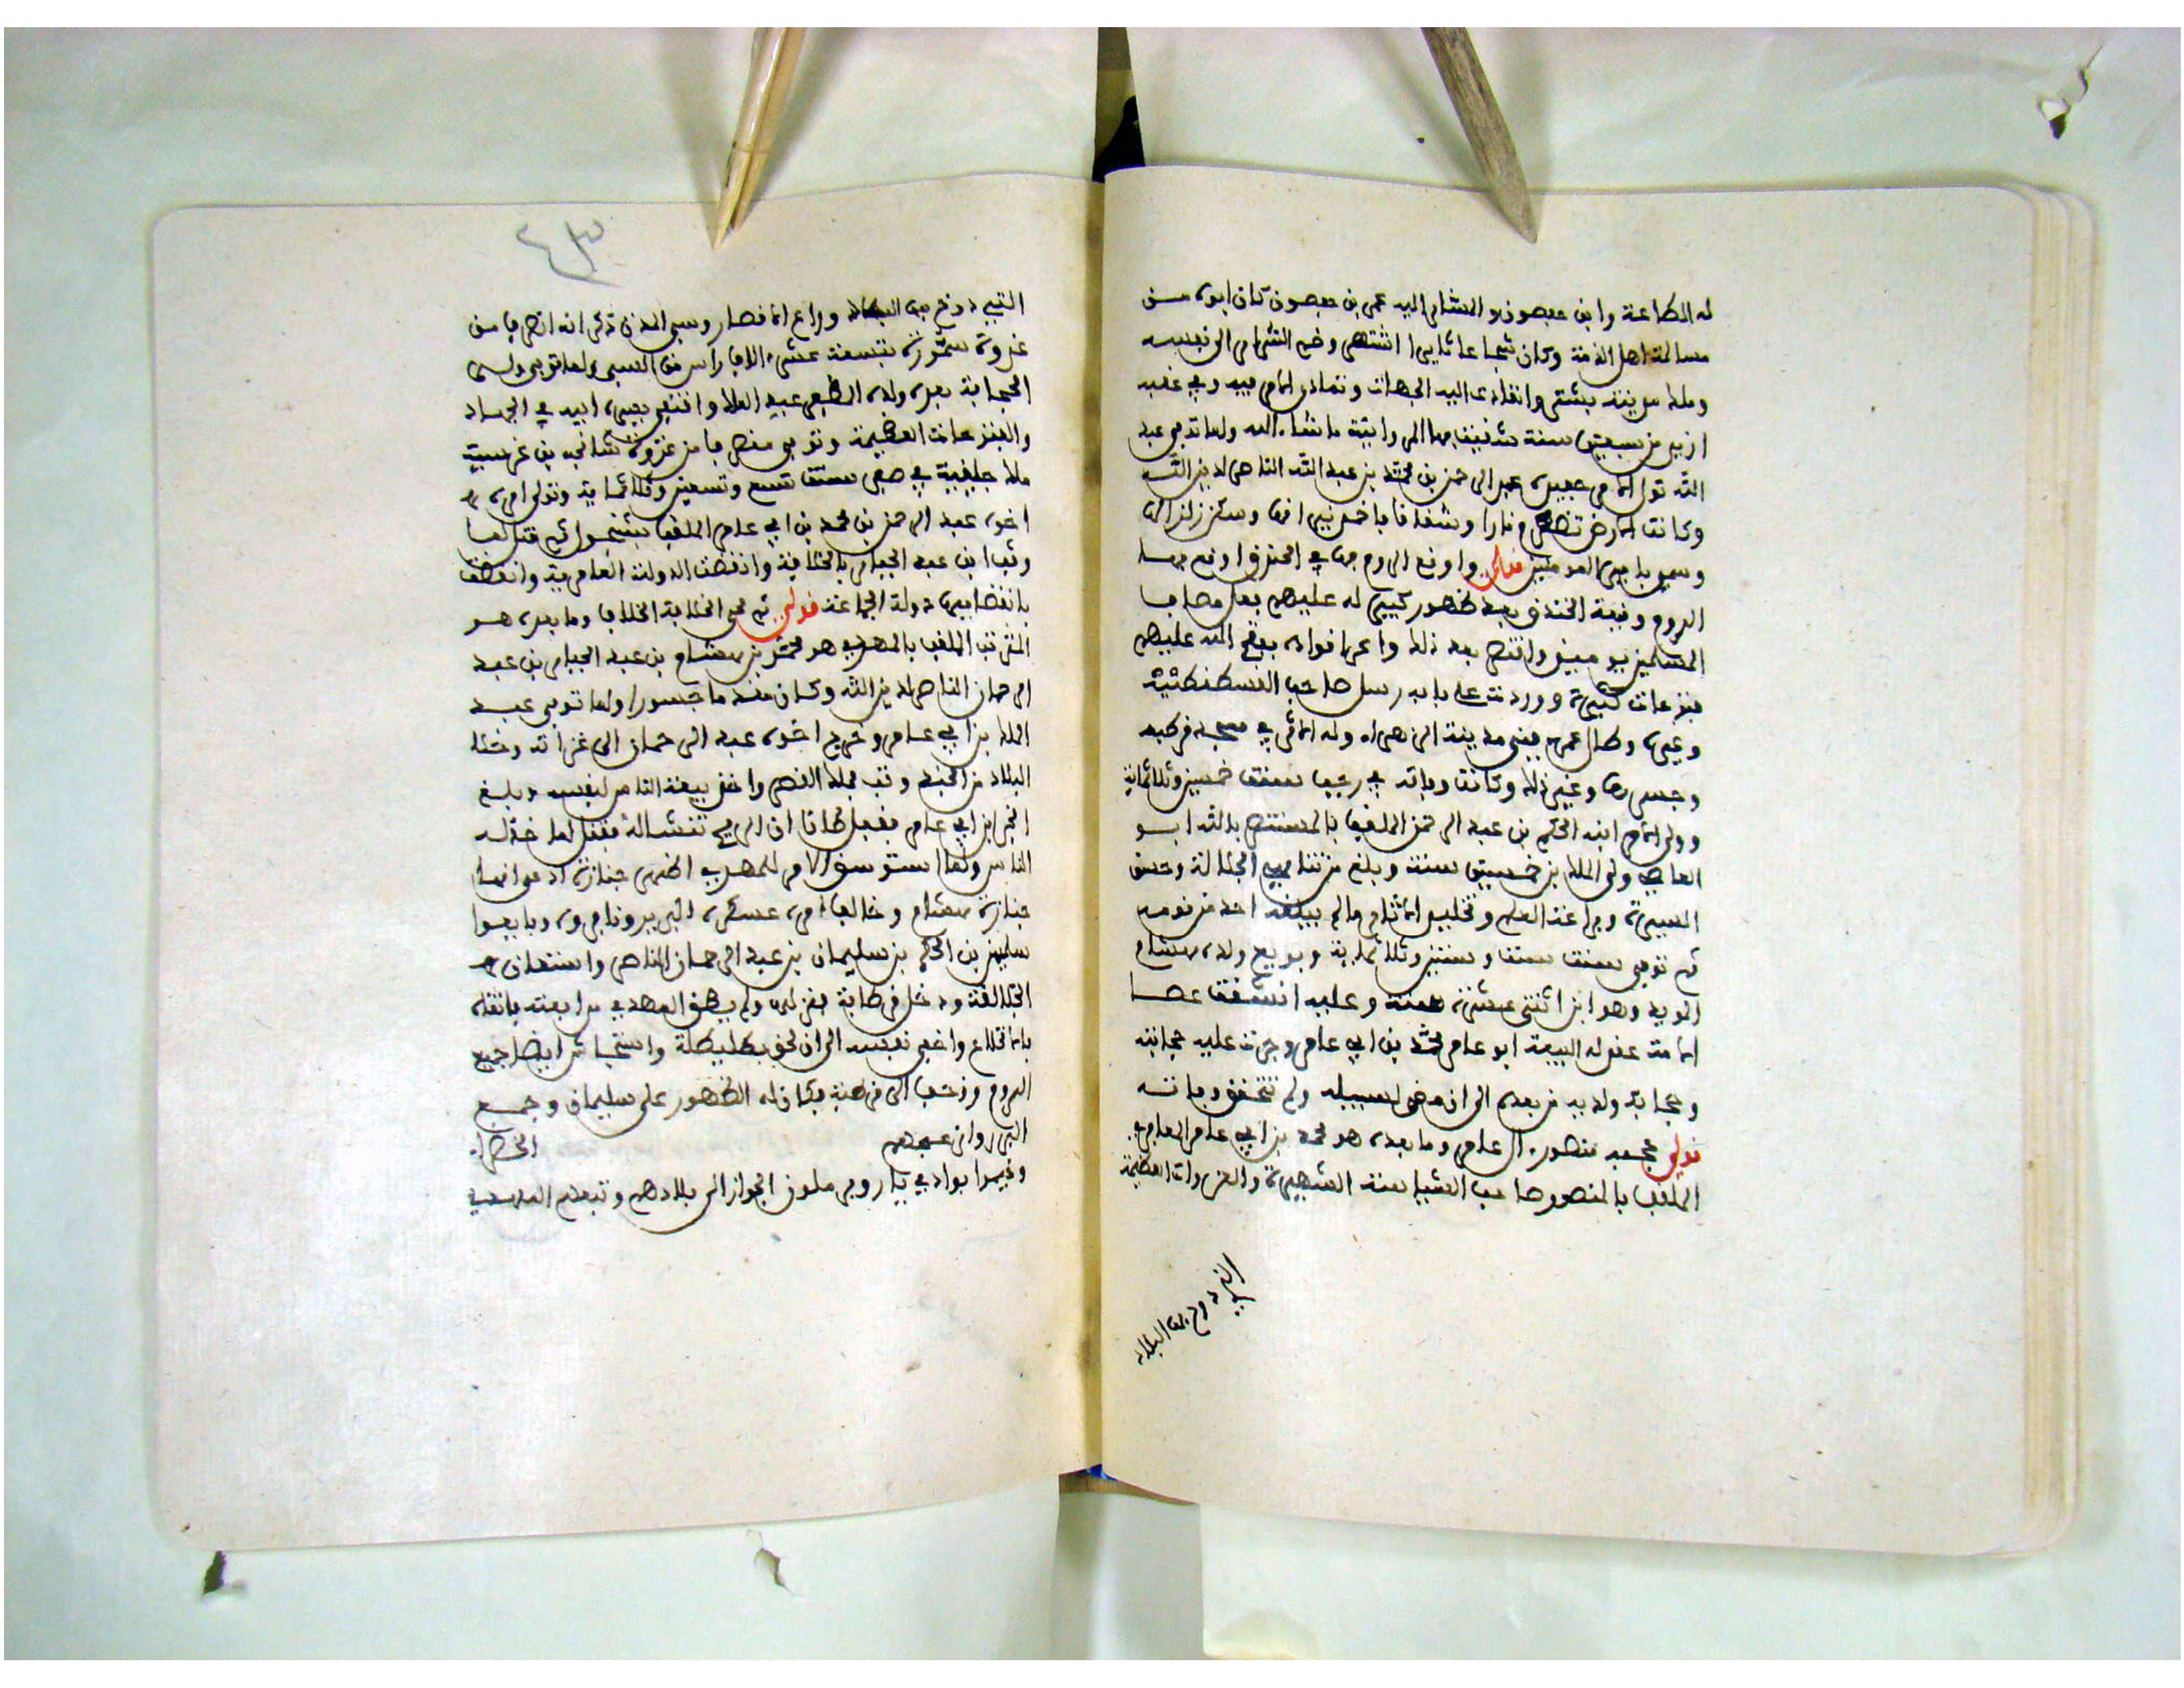 له الطاعة وابن حفصون المشار اليه عمر بن حفصون كان ابوه من
مسالمة اهل الذمة وكان شجاعا ثايرا اشتهر وضم الشرار الى نفسه
وملك مدينة ببشتر وانقادت اليه الجهات وتمادى الامر فيه وفي عقبه
ازيد من سبعين سنة ما شاء الله ولما توفي عبد
الله تولى الامر حفيده عبد الرحمن بن محمد بن عبد الله الناصر لدين الله
وكانت الارض تضطرم نارا وشقاقا فاخمد نيرانها وسكن زلزالها
وسمي بامير المومنين قولي واوقع الروم بها في الخندق اوقع بها
الروم وقيعة الخندق بعد ظهور كبير له عليهم بعد مصاب
المسلمين يوميذ وافتتح بعد ذلك واغزا قواده بفتح الله عليهم
فتوحات كبيرة ووردت على بابه رسل صاحب القسطنطنية
وغيره وطال عمره فبنى مدينة الزهراء وله الاثر في مسجد قرطبة
وجسرها وغير ذلك وكانت وفاته في رجب سنة خمسين وثلاثماية
وولي الامر ابنه الحكم بن عبد الرحمن الملقب بالمستنصر بالله ابو
العاصي ولي الملك بن خمسين سنة وبلغ من تناهي الجلالة وحسن
السيرة وبراعة العلم وتخليد الاثار ما لم يبلغه احد من قومه
ثم توفي سنة ست وستين وثلاثماية وبويع ولده هشام
المويد وهو ابن اثنتي عشرة سنة وعليه انشقت عصا
الامة عقد له البيعة ابو عامر محمد بن ابي عامر وجرت عليه حجابته
وحجابة ولديه من بعده الى ان مضى لسبيله ولم تتحقق وفاته
قولي محجبه منصور ال عامر وما بعده هو محمد بن ابي عامر المعافري
الملقب بالمنصور صاحب السياسة الشهيرة والغزوات العظيمة
التي دوخ بها البلاد
٤٣
التي دوخ بها البلاد وراع الاقطار وسبى المدن ذكر انه انصرف من
غزوة سمورة بتسعة عشر الاف راس من السبي ولما توفي ولي
الحجابة بعده ولده المظفر عبد الملك واقتفى سيرة ابيه في الجهاد
والغزوات العظيمة وتوفي منصرفا من غزوة شانجه بن غرسية
ملك جليقية في صفر سنة تسع وتسعين وثلاثماية وتولى امره
اخوه عبد الرحمن بن محمد بن ابي عامر الملقب بشنجول ثم قتل لما
وثب ابن عبد الجبار بالخلافة وانقضت الدولة العامرية وانقضت
بانقضايها دولة الجماعة قولي ثم محى الخلافة الخلاف وما بعده هو
المرتب الملقب بالمهدي هو محمد بن هشام بن عبد الجبار بن عبد
الرحمان الناصر لدين الله وكان مقداما جسورا ولما توفي عبد
الملك بن ابي عامر وخرج اخوه عبد الرحمان الى غزاته وخلا
البلاد من الجند وثب فملك القصر واخذ بيعة الناس لنفسه وبلغ
الخبر ابن ابي عامر فقفل ظانا ان الريح تنشا له فقتل لما خذله
الناس ولما استوسق الامر للمهدي اظهر جنازة ادعى انها
جنازة هشام وخالف امره عسكره البربر ونافروه وبايعوا
سليمن بن الحكم بن سليمان بن عبد الرحمان الناصر واستعان
الجلالقة ودخل قرطبة ففر له ولم يطق المهدي مدافعته فاتقاه
بالانخلاع واخفى نفسه الى ان لحق بطليطلة واستجاش ايضا جميع
الروم وزحف الى قرطبة فكان له الظهور على سليمان وجمع
البربر وانى عجهم الخضرا
وخيموا بوادي يارو يحاولون الجواز الى بلادهم وتبعهم المهدي